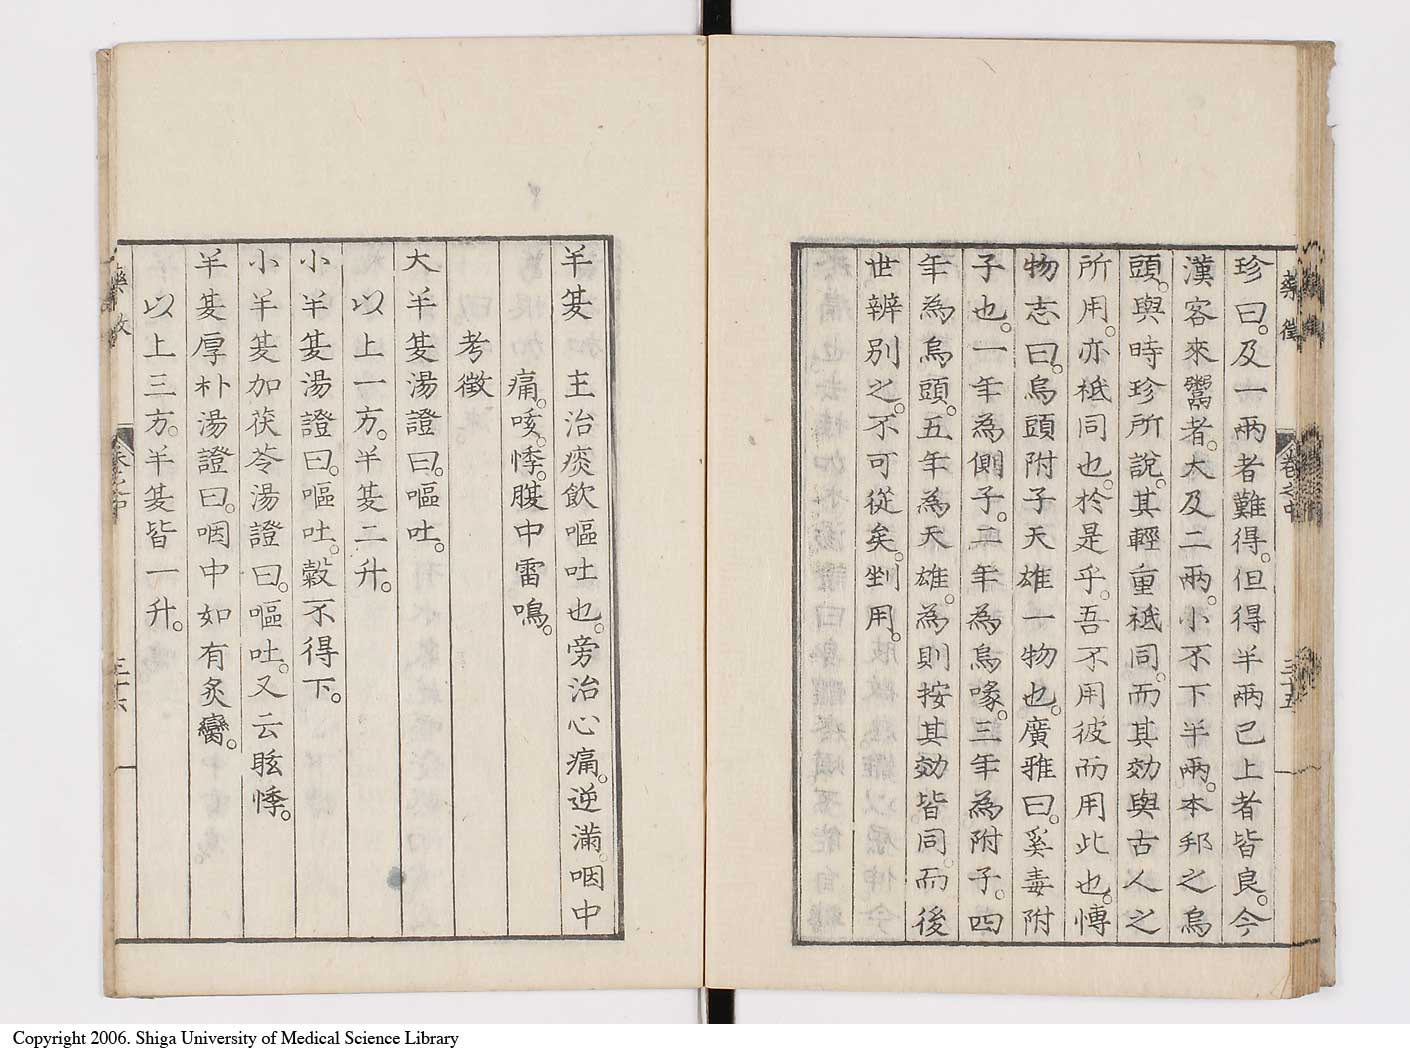 藥徵 卷之中 三十五
珍曰。及一兩者難得。但得半兩已上者皆良。今
漢客來鬻者。大及二兩。小不下半兩。本邦之烏
頭。與時珍所說。其輕重祗同。而其効與古人之
所用。亦祗同也。於是乎。吾不用彼而用此也。博
物志曰。烏頭附子天雄一物也。廣雅曰。奚毒附
子也。一年為側子。二年為烏喙。三年為附子。四
年為烏頭。五年為天雄。為則按其効皆同。而後
世辨別之。不可從矣。剉用。
半夏 主治痰飲嘔吐也。旁治心痛。逆滿。咽中
痛。咳。悸。腹中雷鳴。
考徵
大半夏湯證曰。嘔吐。
以上一方。半夏二升。
小半夏湯證曰。嘔吐。穀不得下。
小半夏加茯苓湯證曰。嘔吐。又云眩悸。
半夏厚朴湯證曰。咽中如有炙臠。
以上三方。半夏皆一升。
藥徵 卷之中 三十六
Copyright 2006. Shiga University of Medical Science Library